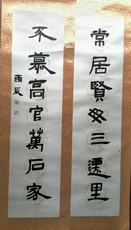 常居賢母三遷里
不慕高官萬石家